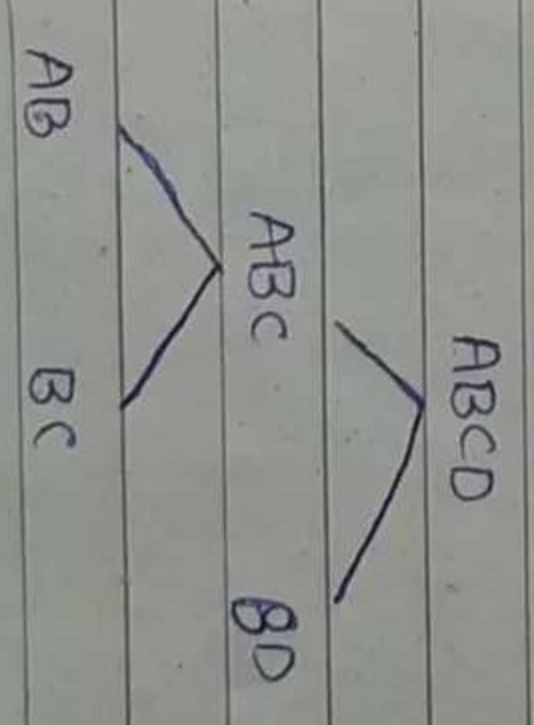 ABCD
ABC BD
AB BC